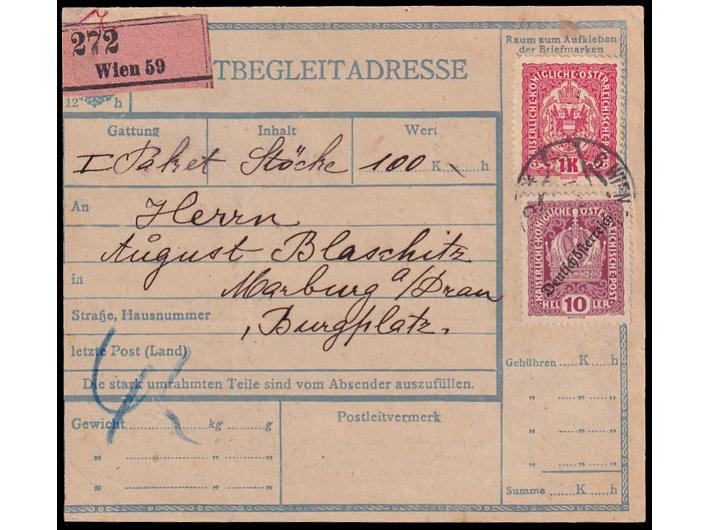 272
Wien 59
TBEGLEITADRESSE
Raum zum Aufkleben
der Briefmarken
12 h
Gattung Inhalt Wert
I Paket Stöcke 100 K h
An Herrn
August Blaschitz
in Marburg a/Drau
Straße, Hausnummer Burgplatz
letzte Post (Land)
Die stark umrahmten Teile sind vom Absender auszufüllen.
KAISERLICHE KÖNIGLICHE ÖSTERREICHISCHE POST
1K
6 WIEN
KAISERLICHE KÖNIGLICHE ÖSTERREICHISCHE POST
Deutschösterreich
10
HEL LER
Gebühren K h
" "
" "
" "
Summe K h
Gewicht kg g
" " "
" " "
Postleitvermerk